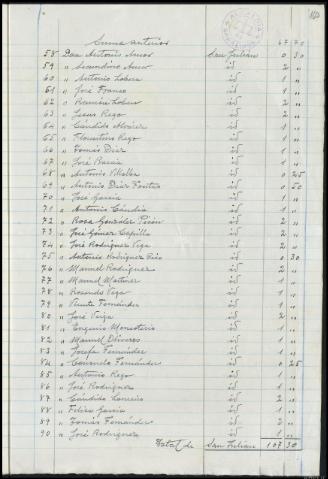 Suma anterior 67 70
58 Don Antonio Amor San Julian 0 50
59 " Secundino Amor id 2 "
60 " Antonio Lobera id 1 "
61 " José Franco id 1 "
62 " Ramón Lobera id 2 "
63 " Jesus Rego id 2 "
64 " Cándido Alvarez id 1 "
65 " Florentino Rego id 1 "
66 " Tomás Diaz id 1 "
67 " José Bascia id 1 "
68 " Antonio Vilalba id 0 25
69 " Antonio Diaz Fontes id 0 50
70 " José Garcia id 1 "
71 " Antonio Candia id 1 "
72 " Rosa Gonzalez Pión id 2 "
73 " José Gómez Capilla id 2 "
74 " José Rodriguez Vega id 2 "
75 " Antonio Rodriguez id 0 30
76 " Manuel Rodriguez id 2 "
77 " Manuel Martinez id 1 "
78 " Rosendo Vega id 1 "
79 " Vicente Fernández id 1 "
80 " José Veiga id 2 "
81 " Eugenio Monasterio id 1 "
82 " Manuel Oliveros id 1 "
83 " Josefa Fernández id 1 "
84 " Consuelo Fernández id 0 25
85 " Antonio Rego id 1 "
86 " José Rodriguez id 1 "
87 " Cándido Loureiro id 2 "
88 " Felisa Garcia id 1 "
89 " Tomás Fernández id 2 "
90 " José Rodriguez id 1 "
Total de San Julian 107 30